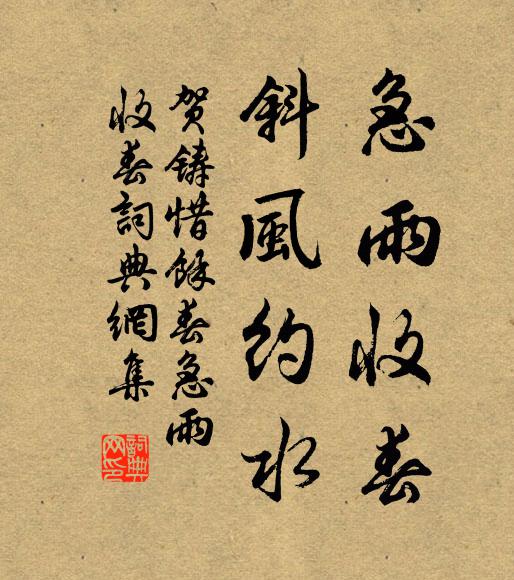 急雨收春
斜風約水
贺鑄惜餘春急雨
收春詞典網集
詞典
网印